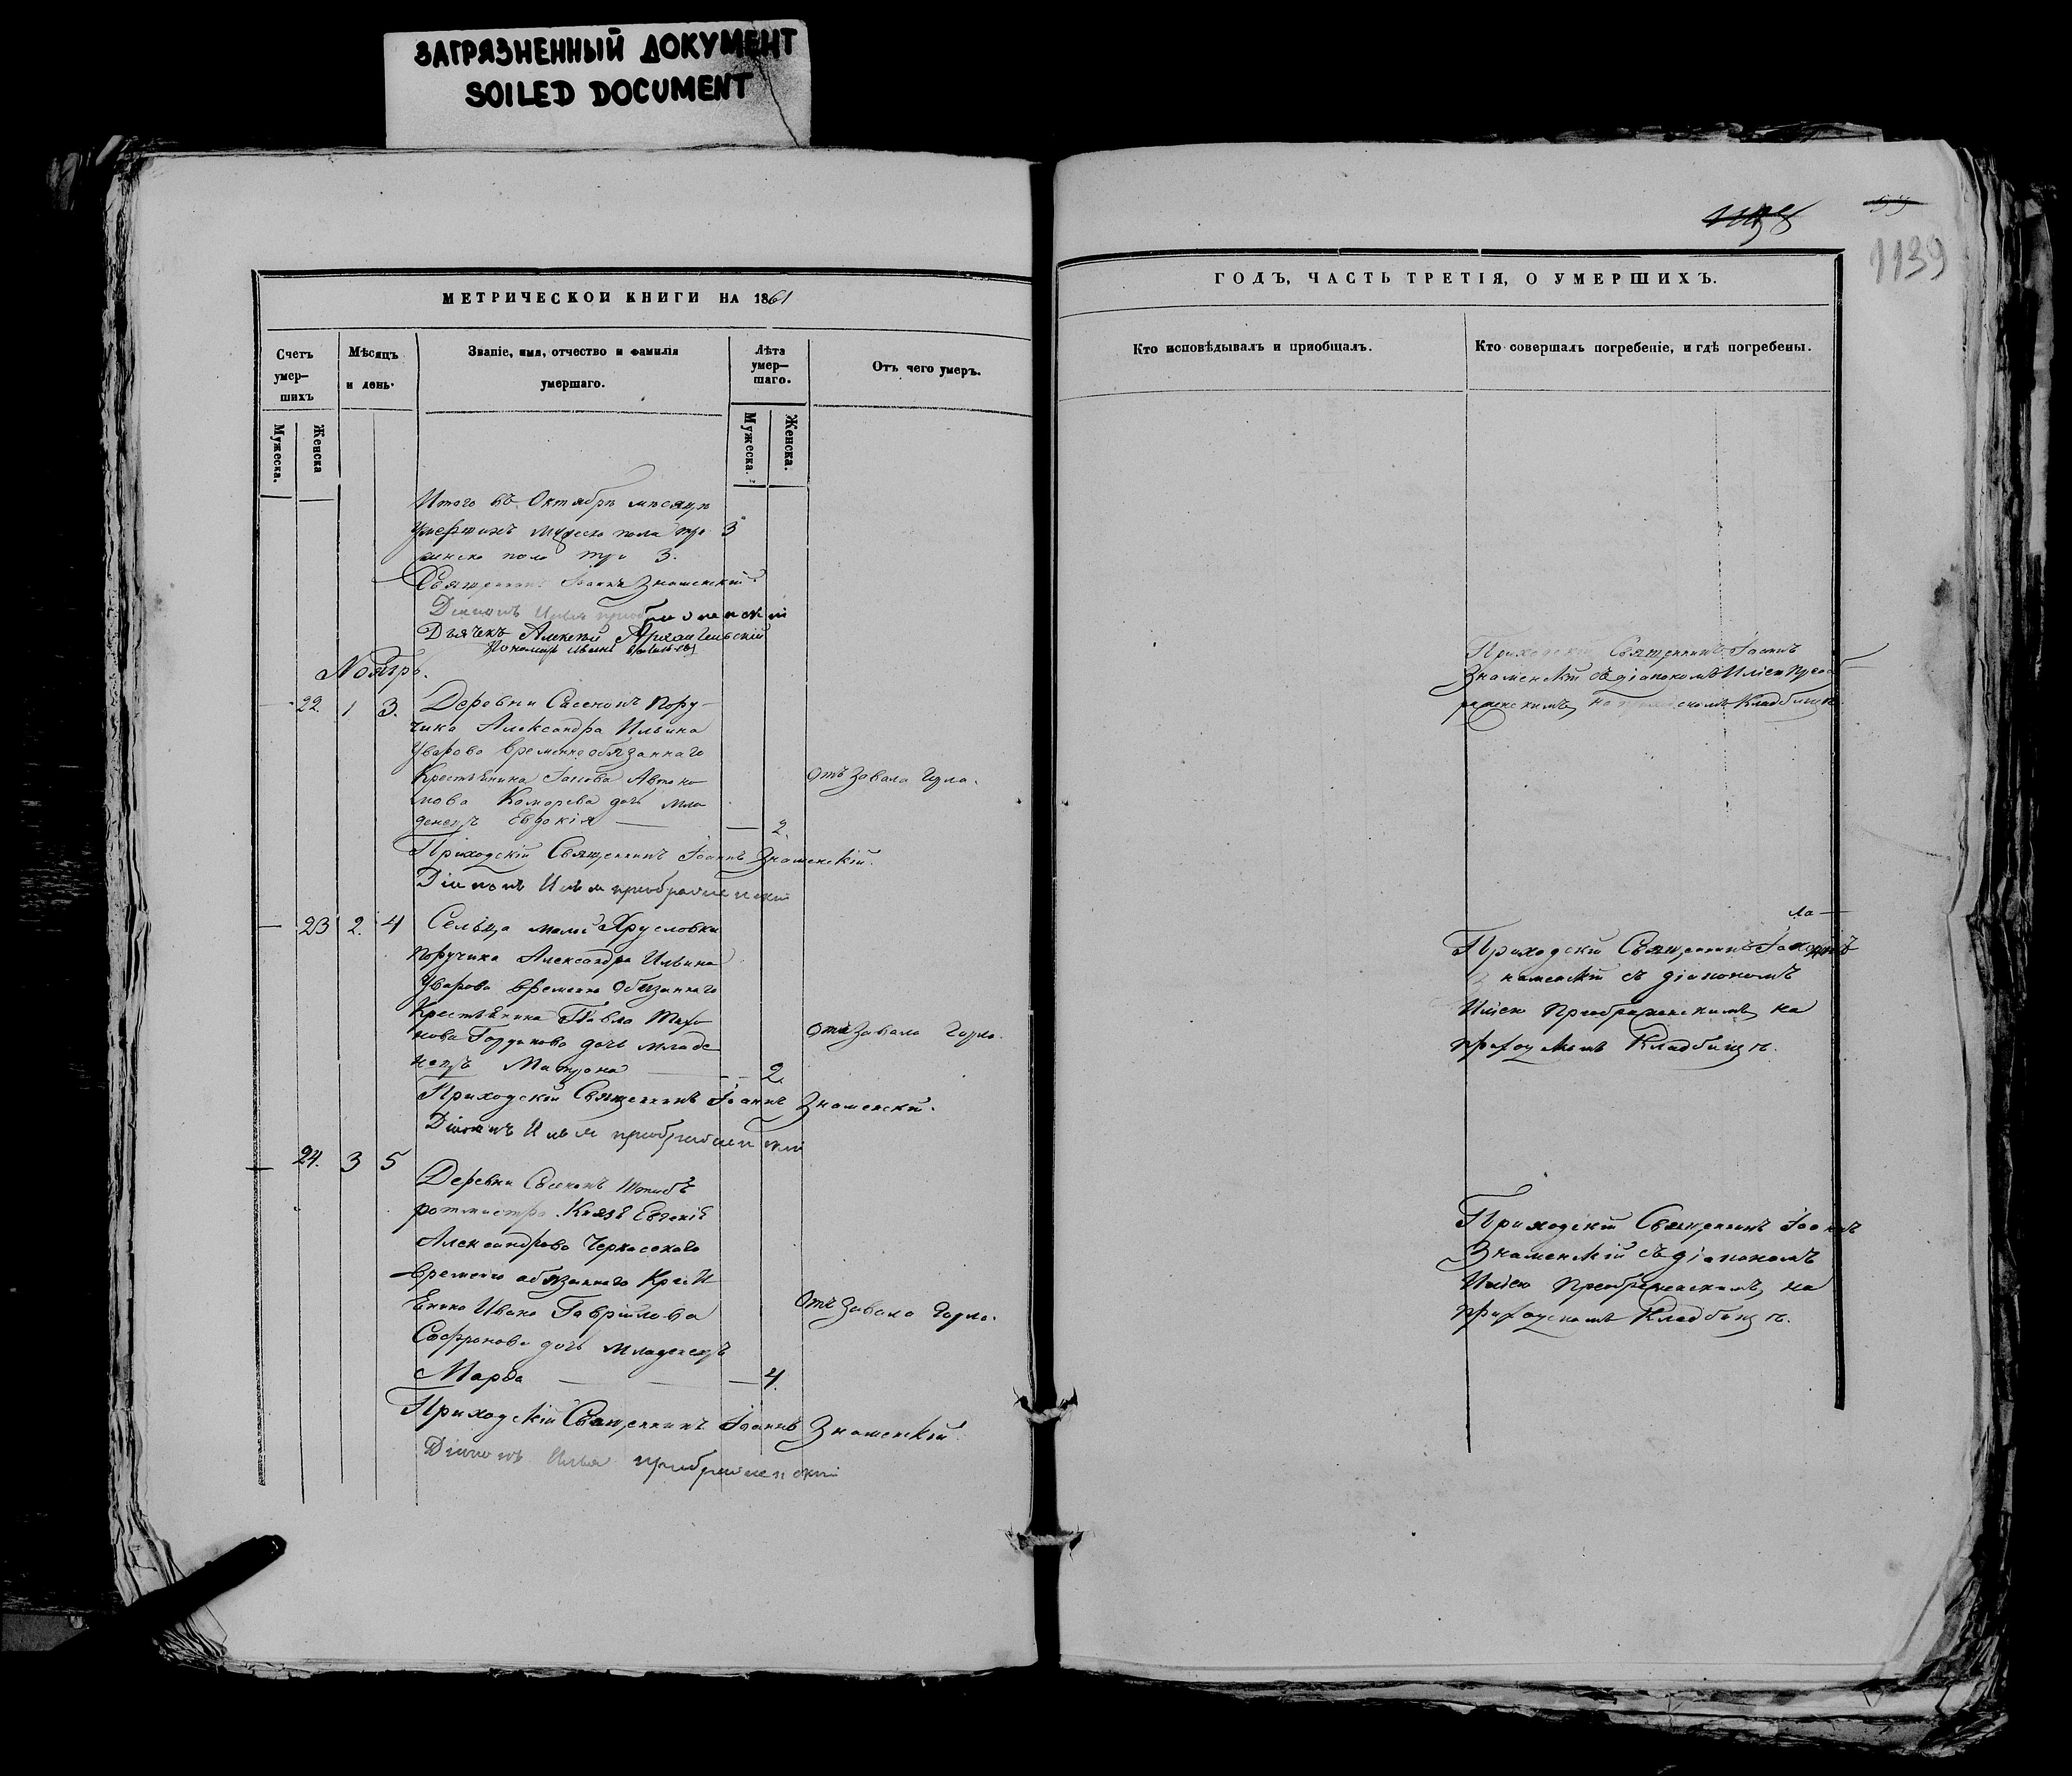 ЗАГРЯЗНЕННЫЙ ДОКУМЕНТ
SOILED DOCUMENT
МЕТРИЧЕСКОИ КНИГИ НА 1861
Счетъ умер-шихъ
Мѣсяцъ и день.
Званіе, имя, отчество и фамилія умершаго.
Лѣта умер-шаго.
Отъ чего умеръ.
Мужеска.
Женска
Мужеска.
Женска.
Итого въ Октябрѣ мѣсяцѣ
умершихъ мужеска пола три 3
женска пола три 3.
Священникъ Іоаннъ Знаменскій
Діаконъ Илья Преображенскій
Дьячекъ Алексѣй Архангельскій
Пономарь
Ноябрь.
22. 1 3. Деревни Пору-
чика Александра Ильина
Уварова временнообязаннаго
Крестьянина Іакова Авто-
нова дочь мла
денецъ Евдокія — 2.
Отъ завала Горла.
Приходскій Священникъ Іоаннъ Знаменскій.
Діаконъ Илья Преображенскій
23 2. 4 Сельца малой Хрусловки
Поручика Александра Ильина
Уварова временно обязаннаго
Крестьянина Павла
дочь младе
нецъ Матрона — 2.
Отъ завала Горла.
Приходскій Священникъ Іоаннъ Знаменскій.
Діаконъ Илья Преображенскій
24. 3 5
Деревни Штабъ
ротмистра Князя Евгенія
Александрова Черкасскаго
временно обязаннаго Крестья
Ивана Гаврилова
Софронова дочь младенецъ
Марѳа — 4.
Отъ завала Горла.
Приходскій Священникъ Іоаннъ Знаменскій.
Діаконъ Илья Преображенскій
1139
ГОДЪ, ЧАСТЬ ТРЕТІЯ, О УМЕРШИХЪ.
Кто исповѣдывалъ и пріобщалъ.
Кто совершалъ погребеніе, и гдѣ погребены.
Приходскій Священникъ Іоаннъ
Знаменскій съ діакономъ Иліею Преоб
раженскимъ, на приходскомъ Кладбищѣ.
Приходскій Священникъ Іоаннъ
Знаменскій съ діакономъ
Иліею Преображенскимъ, на
приходскомъ Кладбищѣ.
Приходскій Священникъ Іоаннъ
Знаменскій съ діакономъ
Иліею Преображенскимъ, на
приходскомъ Кладбищѣ.